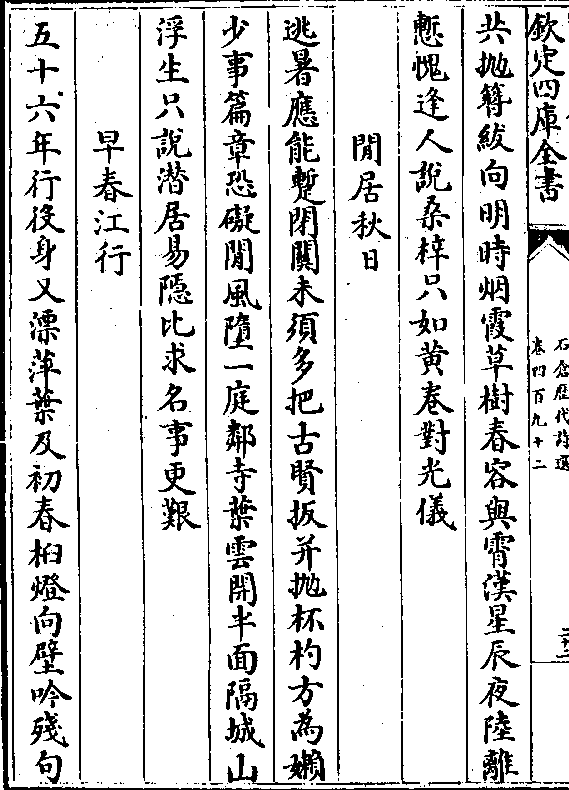 欽定四庫全書
石倉歷代詩選
卷四百九十二
二十二
共抛簪紱向明時烟霞草樹春容與霄漢星辰夜陸離
慙愧逢人說桑梓只如黄卷對光儀
閒居秋日
逃暑應能蹔閉關未須多把古賢扳并抛杯杓方為嬾
少事篇章恐礙閒風墮一庭鄰寺葉雲開半面隔城山
浮生只說潛居易隱比求名事更艱
早春江行
五十六年行役身又漂萍葉及初春桕燈向壁吟殘句